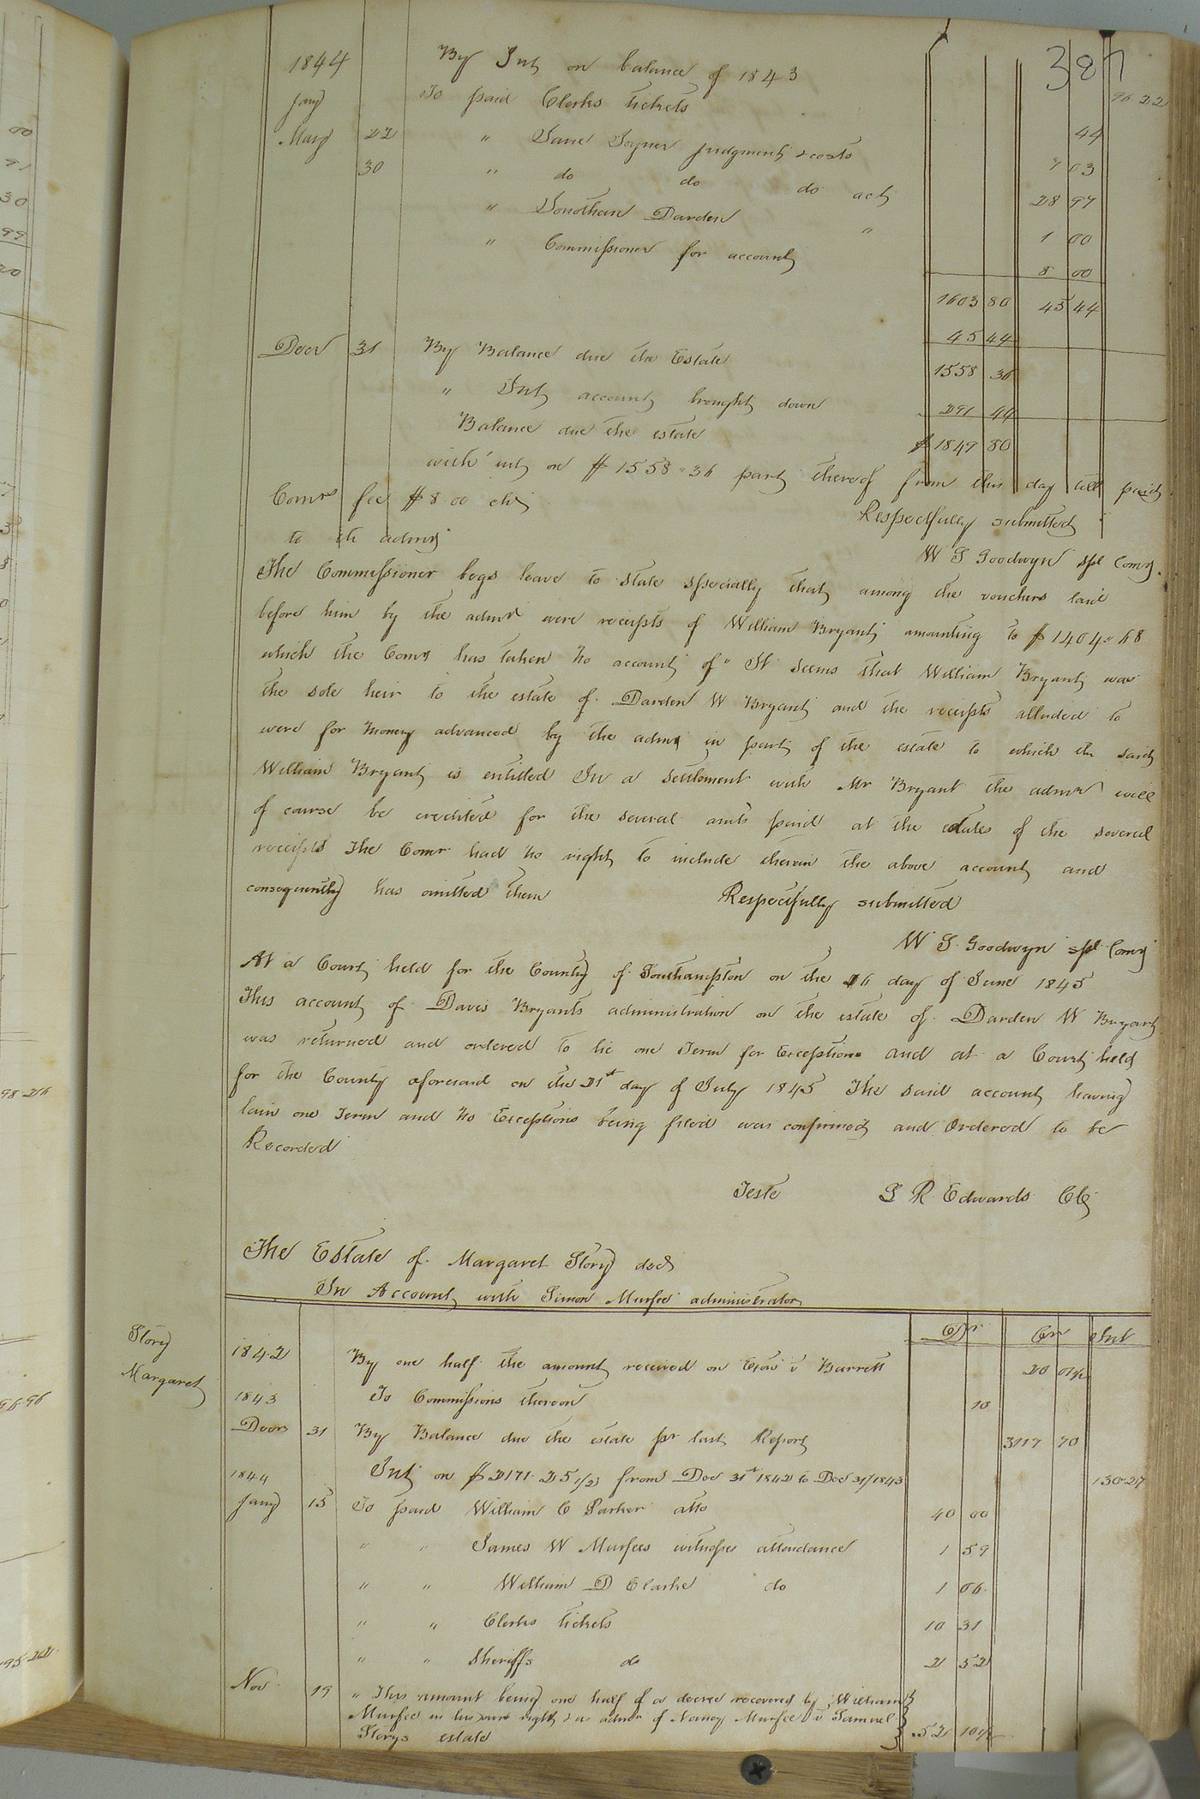 387
1844 By Int on balance of 1843 96 22
Jany To paid Clerks tickets 44
May 22 " Jane judgment & costs 7 03
30 " do do do acct 28 97
" Jonathan Darden " 1 00
" Commissioner for account 8 00
1603 80 45 44
45 44
Decr 31 By Balance due the Estate 1558 36
" Int account brought down 291 44
Balance due the estate $1849 80
with int on $1558.36 part thereof from this day till paid
Comrs fee $8 00 chg Respectfully submitted
to the admr W S Goodwyn spl Comr.
The Commissioner begs leave to state specially that among the vouchers laid
before him by the admr were receipts of William Bryant amounting to $1404.68
which the Comr has taken no account of. It seems that William Bryant was
the sole heir to the estate of Darden W Bryant and the receipts alluded to
were for money advanced by the admr in part of the estate to which the said
William Bryant is entitled In a settlement with Mr Bryant the admr will
of course be credited for the several amts paid at the dates of the several
receipts The Comr had no right to include therein the above account and
consequently has omitted them Respectfully submitted
W S Goodwyn spl Comr
At a Court held for the County of Southampton on the 16 day of June 1845
This account of Davis Bryants administration on the estate of Darden W Bryant
was returned and ordered to lie one Term for Exceptions and at a Court held
for the County aforesaid on the 21st day of July 1845 The said account having
lain one Term and no Exceptions being filed was confirmed and Ordered to be
Recorded
Teste L R Edwards Clk
The Estate of Margaret Story decd
In Account with Simon Murfee administrator
Story
Margaret
Dr Cr Int
1842 By one half the amount received on v Barrett 20 01½
1843 To Commissions thereon 10
Decr 31 By Balance due the estate pr last Report 3117 70
1844 Int on $2171.25 from Dec 31st 1842 to Dec 31/1843 130 27
Jany 15 To paid William C Parker atto 40 00
" " James W Murfees witness attendance 1 59
" " William D Clarke do 1 06
" " Clerks tickets 10 31
" " Sheriffs do 2 52
Nov 19 " This amount being one half of a decree recovered by William
Murfee in his own right & as admr of Nancy Murfee v Samuel
Storys estate 52 10½
00
71
30
99
20
98 26
96 96
195 22